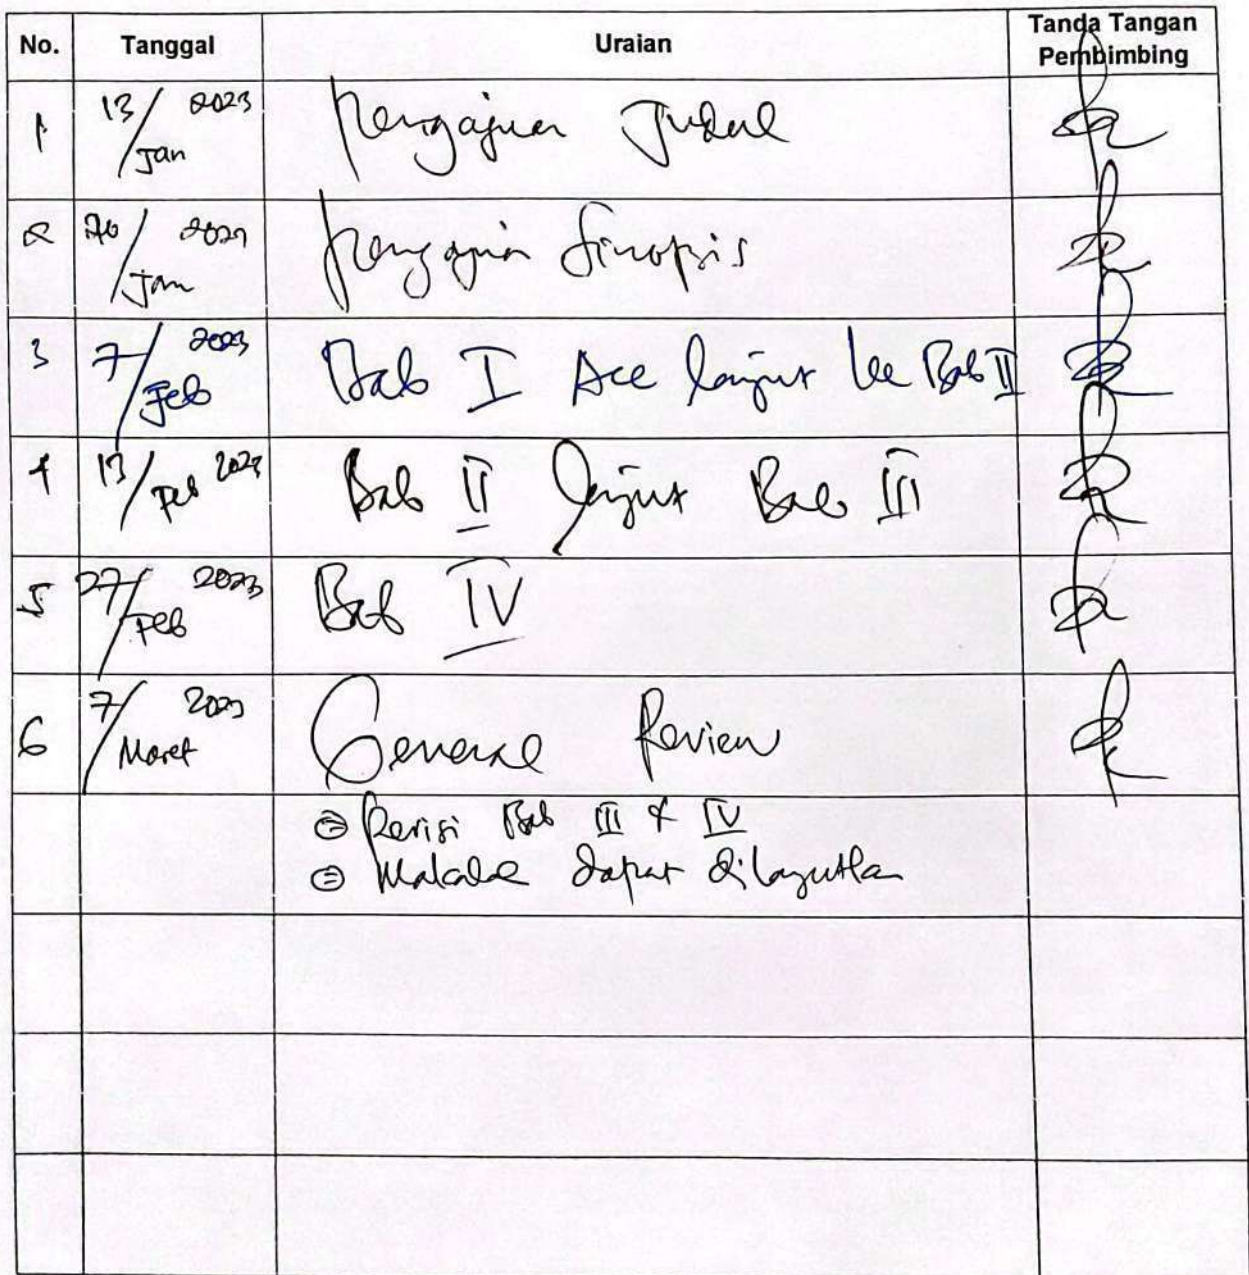 No. Tanggal Uraian Tanda Tangan Pembimbing
1 13/Jan 2023 Pengajuan Judul
2 26/Jan 2023 Pengajuan Sinopsis
3 7/Feb 2023 Bab I Acc lanjut ke Bab II
4 13/Feb 2023 Bab II lanjut Bab III
5 27/Feb 2023 Bab IV
6 7/Maret 2023 General Review
Revisi Bab III & IV
dapat dilanjutkan